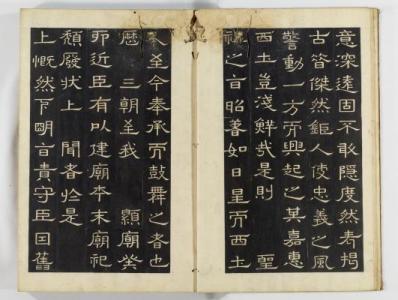 意深遠固不敢隱度然表揭
古昔傑然鉅人使忠義之風
警動一方而興起之其嘉惠
西土豈淺鮮哉是則 聖
祖之旨昭著如日星而西土
至今奉承而鼓舞之者也
歷三朝至我 顯廟癸
卯近臣有以建廟本末廟祀
頹廢狀上 聞者於是
上慨然下明旨責守臣囙舊